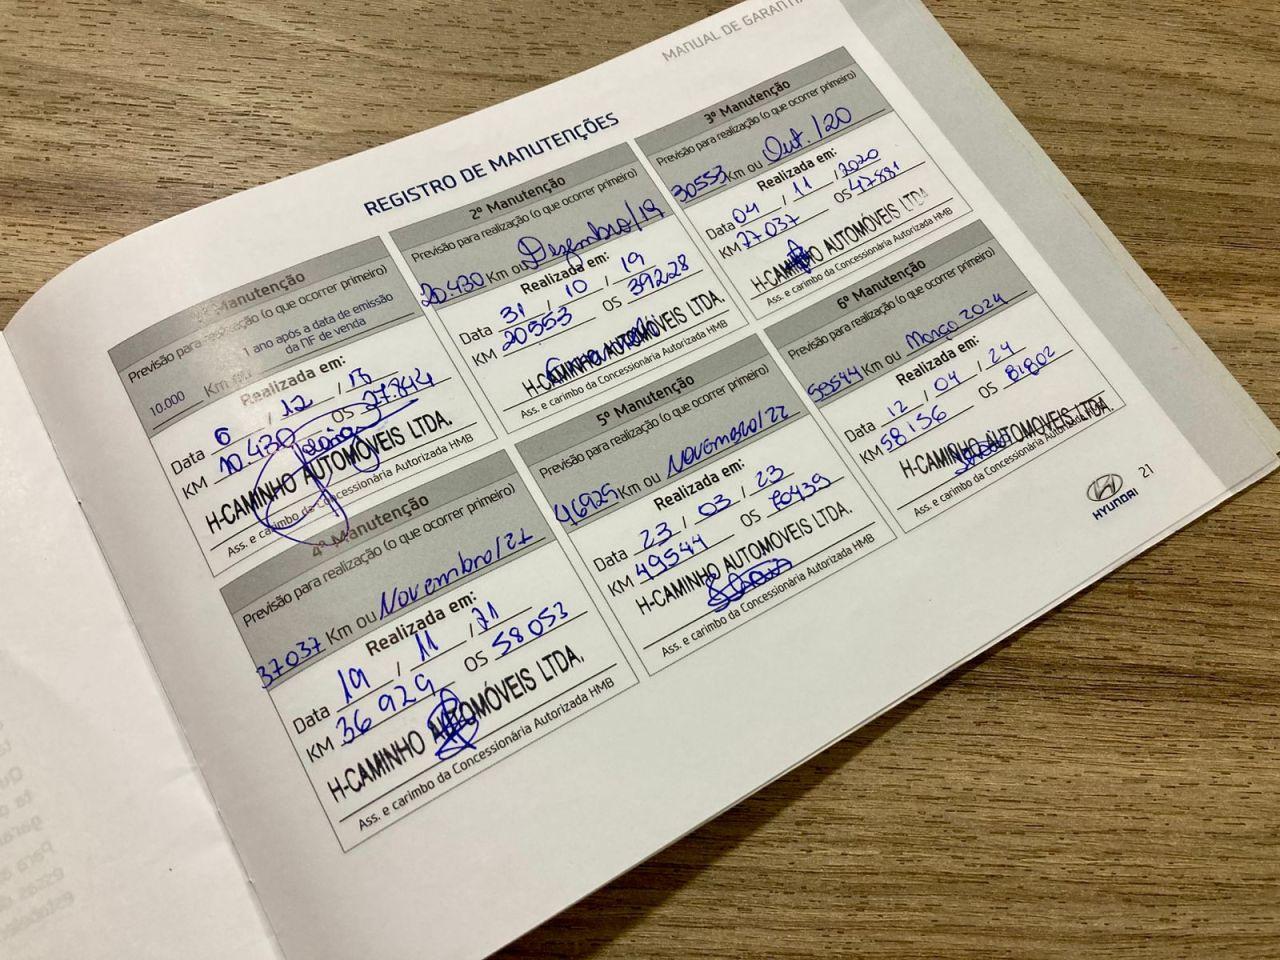 MANUAL DE GARANTIA
REGISTRO DE MANUTENÇÕES
Manutenção
Previsão para realização (o que ocorrer primeiro)
10.000 Km ou 1 ano após a data de emissão
da NF de venda
Realizada em:
Data 6 / 12 / 18
KM 10.430 OS 27.844
H-CAMINHO AUTOMÓVEIS LTDA.
Ass. e carimbo da Concessionária Autorizada HMB
2º Manutenção
Previsão para realização (o que ocorrer primeiro)
20.430 Km ou Dezembro/19
Realizada em:
Data 31 / 10 / 19
KM 20553 OS 39228
H-CAMINHO AUTOMÓVEIS LTDA.
Ass. e carimbo da Concessionária Autorizada HMB
3º Manutenção
Previsão para realização (o que ocorrer primeiro)
30553 Km ou Out. /20
Realizada em:
Data 04 / 11 / 2020
KM 27037 OS 47881
H-CAMINHO AUTOMÓVEIS LTDA
Ass. e carimbo da Concessionária Autorizada HMB
4º Manutenção
Previsão para realização (o que ocorrer primeiro)
37037 Km ou Novembro/21
Realizada em:
Data 19 / 11 / 21
KM 36929 OS 58053
H-CAMINHO AUTOMÓVEIS LTDA.
Ass. e carimbo da Concessionária Autorizada HMB
5º Manutenção
Previsão para realização (o que ocorrer primeiro)
46929 Km ou Novembro/22
Realizada em:
Data 23 / 03 / 23
KM 49544 OS 70439
H-CAMINHO AUTOMÓVEIS LTDA.
Ass. e carimbo da Concessionária Autorizada HMB
6º Manutenção
Previsão para realização (o que ocorrer primeiro)
59544 Km ou Março 2024
Realizada em:
Data 12 / 04 / 24
KM 58156 OS 81802
H-CAMINHO AUTOMÓVEIS LTDA.
Ass. e carimbo da Concessionária Autorizada HMB
HYUNDAI
21